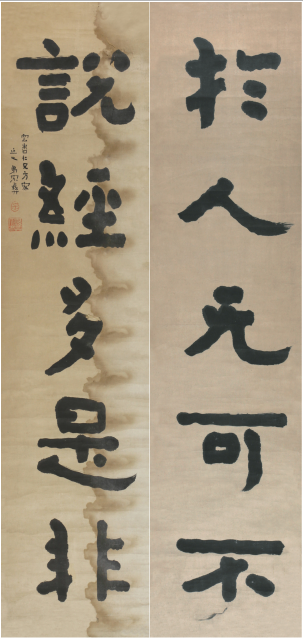 於人无可不
說經多是非